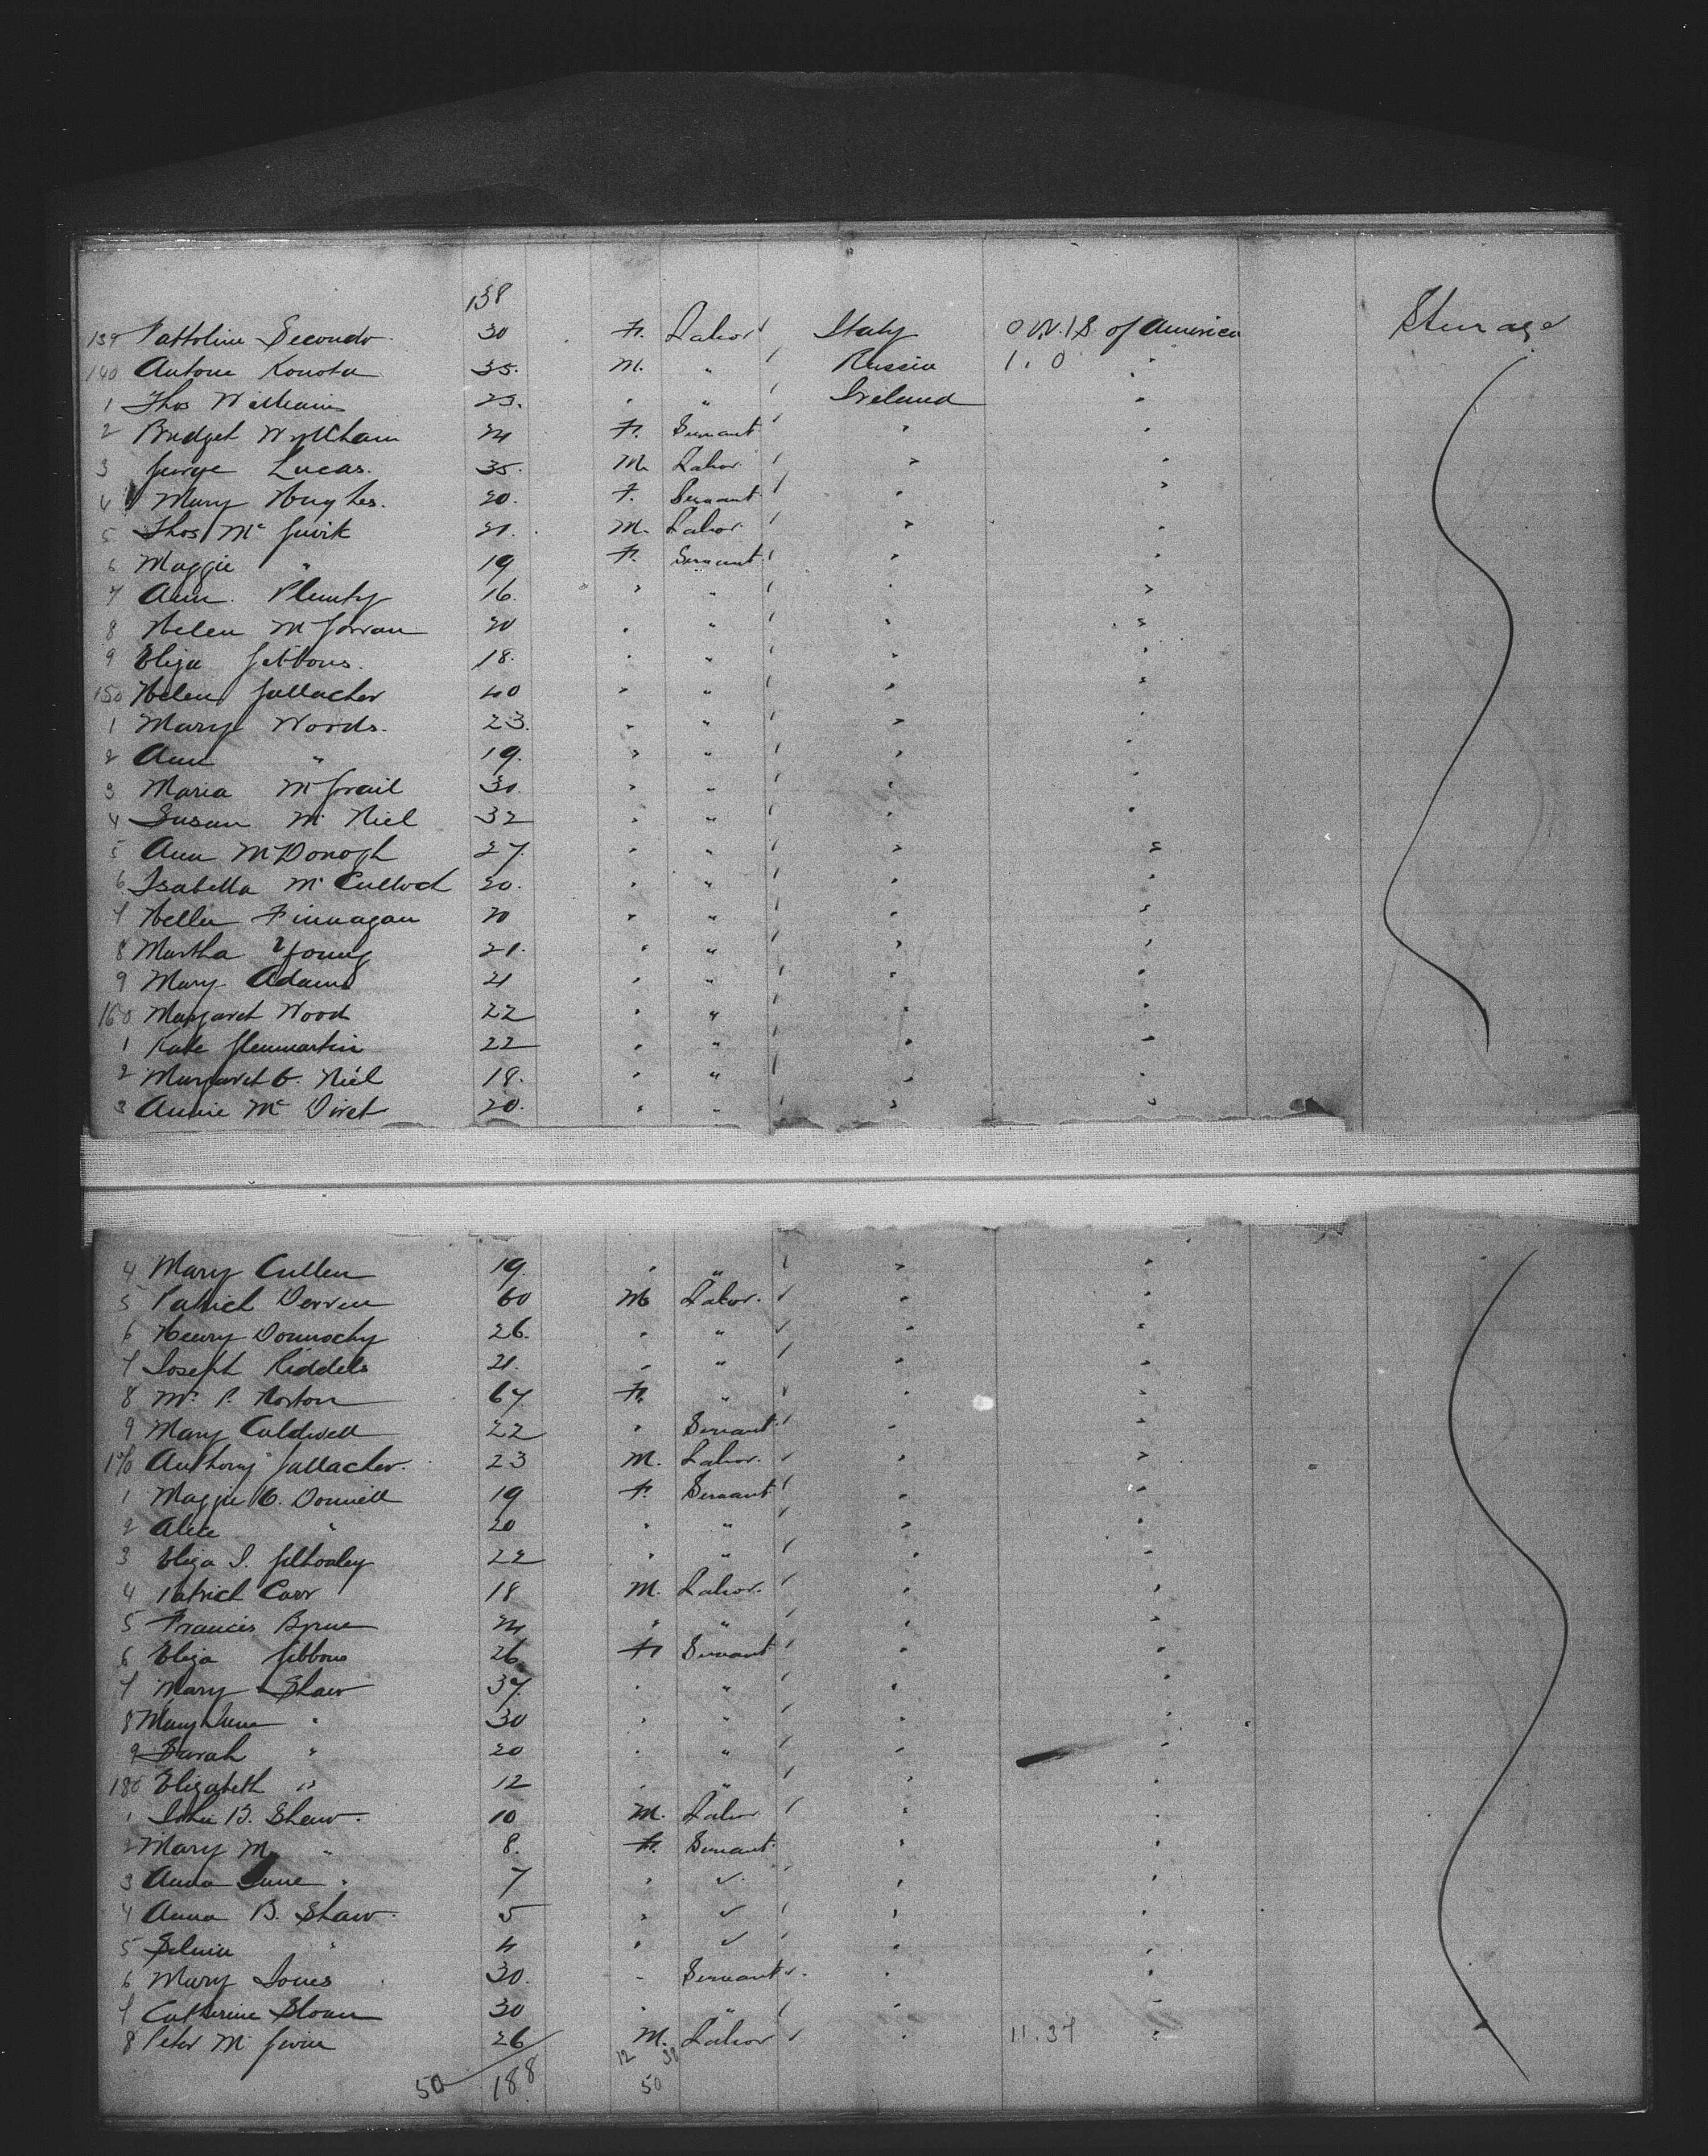 138
139 Pattoline Secondo 30 F. Labor Italy U.S. of America Steerage
140 Antone Konota 35. M. " Russia 1. 0 "
1 Thos Williams 23. " " Ireland "
2 Bridget 24 F. Servant " "
3 George Lucas. 35. M Labor " "
4 Mary Hughes. 20. F. Servant " "
5 Thos Mc Guirk 21. M. Labor " "
6 Maggie " 19 F. Servant " "
7 Ann Plunty 16. " " " "
8 Helen McGowan 20 " " " "
9 Eliza Gibbons. 18. " " " "
150 Helen Gallacher 40 " " " "
1 Mary Woods. 23. " " " "
2 Ann " 19. " " " "
3 Maria McGrail 30. " " " "
4 Susan Mc Niel 32 " " " "
5 Ann McDonogh 27. " " " "
6 Isabella Mc Culloch 20. " " " "
7 Hellen Finnagan 20 " " " "
8 Martha Young 21. " " " "
9 Mary Adams 21 " " " "
160 Margaret Wood 22 " " " "
1 Kate Glenmartin 22 " " " "
2 Margaret O. Niel 18. " " " "
3 Annie Mc 20. " " " "
4 Mary Cullen 19 " " " "
5 Patrick Derven 60 M Labor. " "
6 Henry Donnochy 26. " " " "
7 Joseph Riddels 21. " " " "
8 Mrs P. Norton 67. F. " " "
9 Mary Caldwell 22 " Servant " "
170 Anthony Gallacher. 23 M. Labor. " "
1 Maggie O. Donnell 19 F. Servant " "
2 Alice " 20 " " " "
3 Eliza J. 22 " " " "
4 Patrick Carr 18 M. Labor. " "
5 Francis Byrne 24 " " " "
6 Eliza Gibbons 26 F Servant " "
7 Mary Shaw 37. " " " "
8 Mary Jane " 30 " " " "
9 Sarah " 20 " " " "
180 Elizabeth " 12 " " " "
1 John B. Shaw. 10 M. Labor " "
2 Mary M " 8. F. Servant " "
3 Anna Jane " 7 " " "
4 Anna B. Shaw. 5 " " "
5 " 4 " " "
6 Mary Jones 30. " Servant " "
7 Catherine Sloan 30 " " " "
8 Peter Mc 26 M. Labor " 11.37 "
12 38
50 188 50